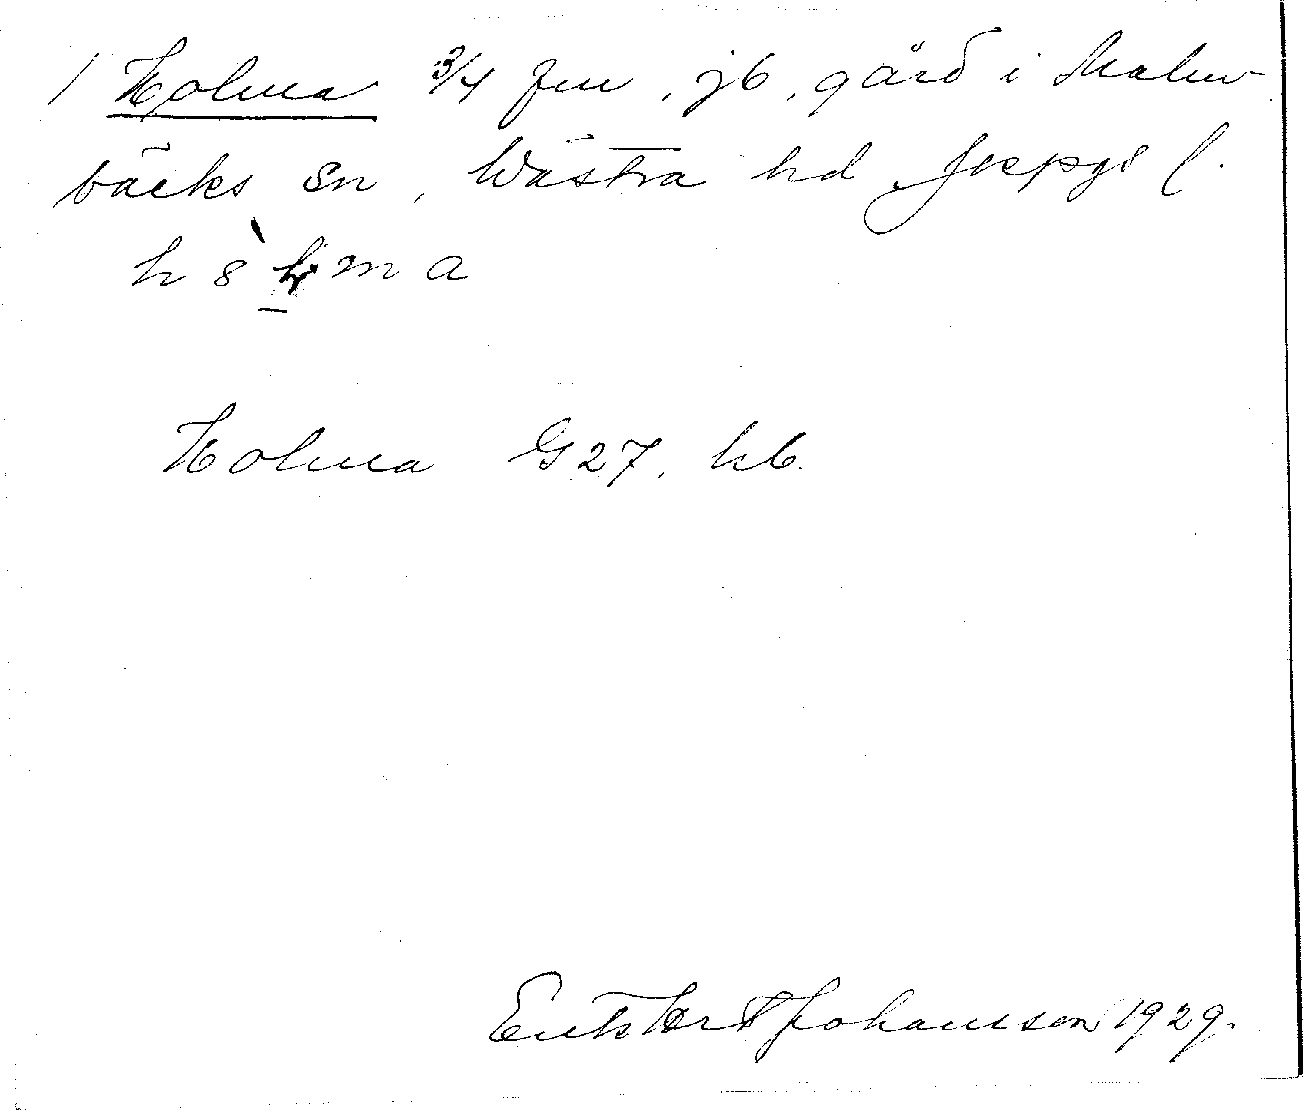 1 Holma 3/4 fm, jb, gård i Malm-
bäcks sn, Västra hd Jkpgs l.
h 8 l m a
Holma G 27, kb.
Enl. Johansson 1929.